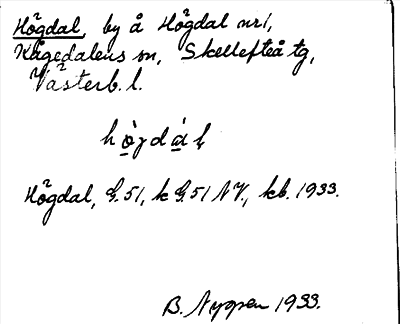 Högdal, by å Högdal nr 1,
Kågedalens sn, Skellefteå tg,
Västerb. l.
Högdal, G. 51, k G. 51 NV., kb. 1933.
B. Nygren 1933.